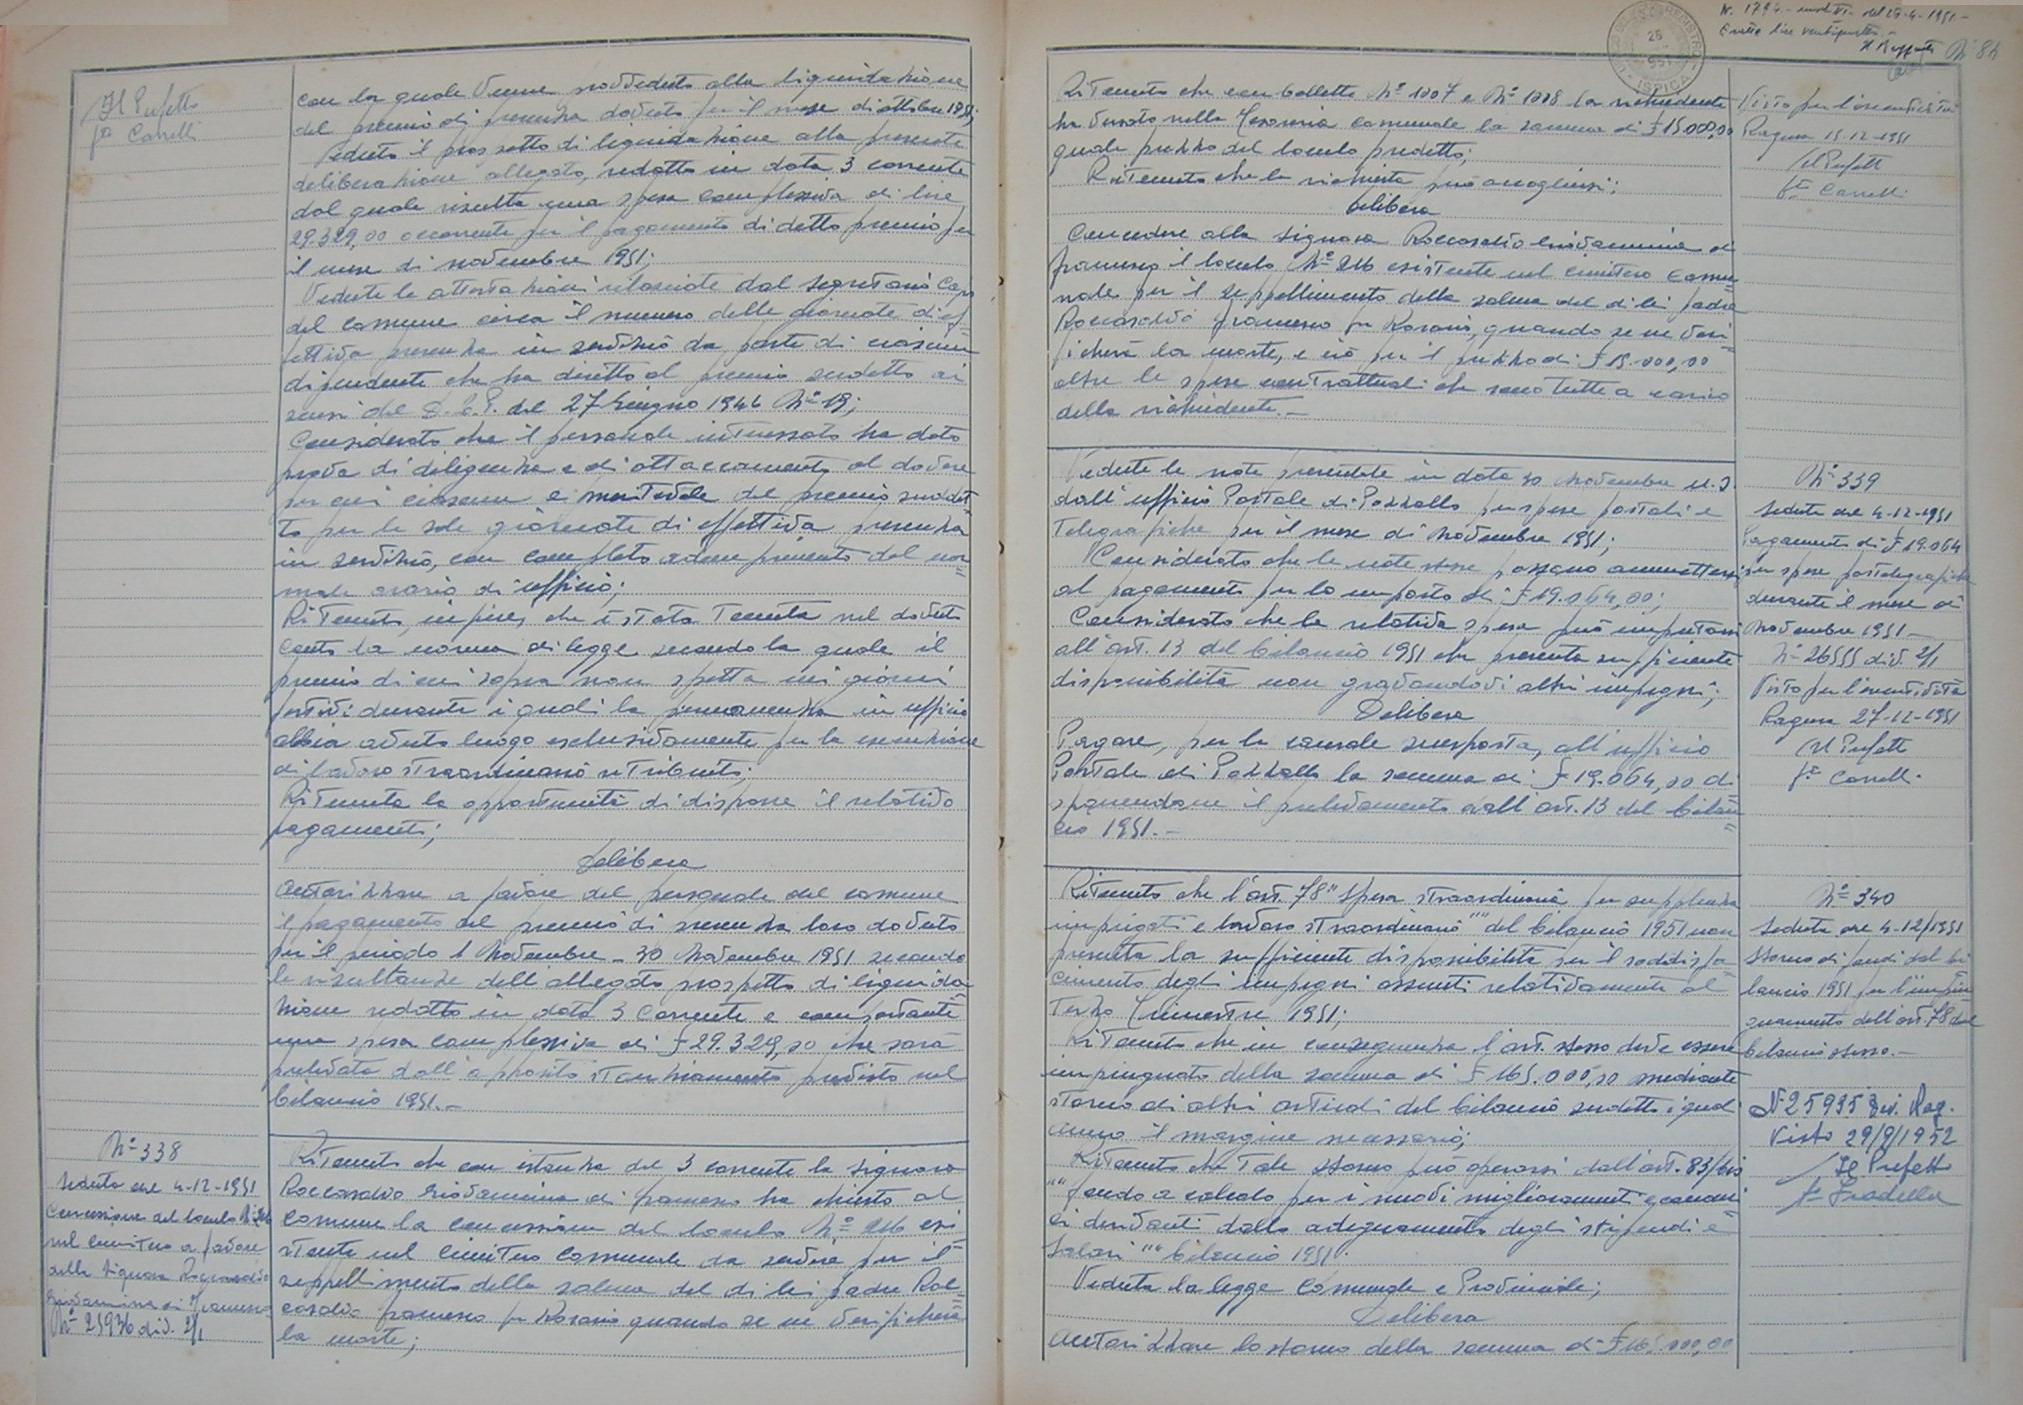 Il Prefetto
fto Carrelli
con la quale venne provveduto alla liquidazione
del premio di presenza dovuto per il mese di ottobre 1951;
Veduto il prospetto di liquidazione alla presente
deliberazione allegato, redatto in data 3 corrente
dal quale risulta una spesa complessiva di lire
29.329,00 occorrente per il pagamento di detto premio per
il mese di novembre 1951;
Vedute le attestazioni rilasciate dal Segretario Capo
del comune circa il numero delle giornate di ef=
fettiva presenza in servizio da parte di ciascun
dipendente che ha diritto al premio suddetto ai
sensi del D.C.P. del 27 Giugno 1946 Nº 19;
Considerato che il personale interessato ha dato
prova di diligenza e di attaccamento al dovere
per cui ciascuno è meritevole del premio suddet
to per le sole giornate di effettiva presenza
in servizio, con completo adempimento del nor=
male orario di ufficio;
Ritenuto, infine, che è stata tenuta nel dovuto
conto la norma di legge secondo la quale il
premio di cui sopra non spetta nei giorni
festivi durante i quali la permanenza in ufficio
abbia avuto luogo esclusivamente per la esecuzione
di lavoro straordinario retribuito;
Ritenuta la opportunità di disporre il relativo
pagamento;
Delibera
Autorizzare a favore del personale del comune
il pagamento del premio di presenza loro dovuto
per il periodo 1 Novembre - 30 Novembre 1951 secondo
le risultanze dell'allegato prospetto di liquida
zione redatto in data 3 corrente e comportante
una spesa complessiva di £ 29.329,00 che sarà
prelevata dall'apposito stanziamento previsto nel
bilancio 1951.-
Nº 338
Seduta del 4-12-1951
Concessione del loculo Nº 216
nel cimitero a favore
della Signora Roccasalvo
Giovannina di Francesco
Nº 25936 div. 2/1
Ritenuto che con istanza del 3 corrente la Signora
Roccasalvo Giovannina di Francesco ha chiesto al
comune la concessione del loculo Nº 216 esi
stente nel Cimitero Comunale da servire per il
seppellimento della salma del di lei padre Roc=
casalvo Francesco fu Rosario quando se ne verificherà
la morte;
N. 1794 - mod. VI - del 29-4-1951.-
Esatte lire
Nº 84
UFFICIO DEL REGISTRO
ISPICA
Ritenuto che con bollette Nº 1007 e Nº 1008 la richiedente
ha versato nella Tesoreria comunale la somma di £ 15.000,00
quale prezzo del loculo predetto;
Ritenuto che la richiesta può accogliersi;
Delibera
Concedere alla Signora Roccasalvo Giovannina di
Francesco il loculo Nº 216 esistente nel cimitero Comu=
nale per il seppellimento della salma del di lei padre
Roccasalvo Francesco fu Rosario, quando se ne veri=
ficherà la morte, e ciò per il prezzo di £ 15.000,00
oltre le spese contrattuali che sono tutte a carico
della richiedente.-
Visto per l'esecutività
Ragusa 15-12-1951
Il Prefetto
fto Carrelli
Vedute le note presentate in data 30 Novembre u.s.
dall'ufficio Postale di Pozzallo per spese postali e
telegrafiche per il mese di Novembre 1951;
Considerato che le note stesse possano ammettersi
al pagamento per lo importo di £ 19.064,00;
Considerato che la relativa spesa può imputarsi
all'art. 13 del bilancio 1951 che presenta sufficiente
disponibilità non gravandovi altri impegni;
Delibera
Pagare, per la causale suesposta, all'ufficio
Postale di Pozzallo la somma di £ 19.064,00 di
sponendone il prelevamento dall'art. 13 del bilan=
cio 1951.-
Nº 339
Seduta del 4-12-1951
Pagamento di £ 19.064
per spese postelegrafiche
durante il mese di
Novembre 1951-
Nº 26555 div. 2/1
Visto per l'esecutività
Ragusa 27-12-1951
Il Prefetto
fto Carrelli
Ritenuto che l'art. 78 "Spesa straordinaria per supplenza
impiegati e lavoro straordinario" del bilancio 1951 non
presenta la sufficiente disponibilità per il soddisfa
cimento degli impegni assunti relativamente al
terzo trimestre 1951;
Ritenuto che in conseguenza l'art. stesso deve essere
impinguato della somma di £ 165.000,00 mediante
storno di altri articoli del bilancio suddetto i quali
anno il margine necessario;
Ritenuto che tale storno può operarsi dall'art. 83/bis
"fondo a calcolo per i nuovi miglioramenti economi
ci derivanti dallo adeguamento degli stipendi e
salari" bilancio 1951.
Veduta la legge Comunale e Provinciale;
Delibera
Autorizzare lo storno della somma di £ 165.000,00
Nº 340
Seduta del 4-12/1951
Storno di fondi dal bi
lancio 1951 per l'impin
guamento dell'art. 78 del
bilancio stesso.-
Nº 25995 Div. Rag.
Visto 29/9/1952
Il Prefetto
fto Fradella